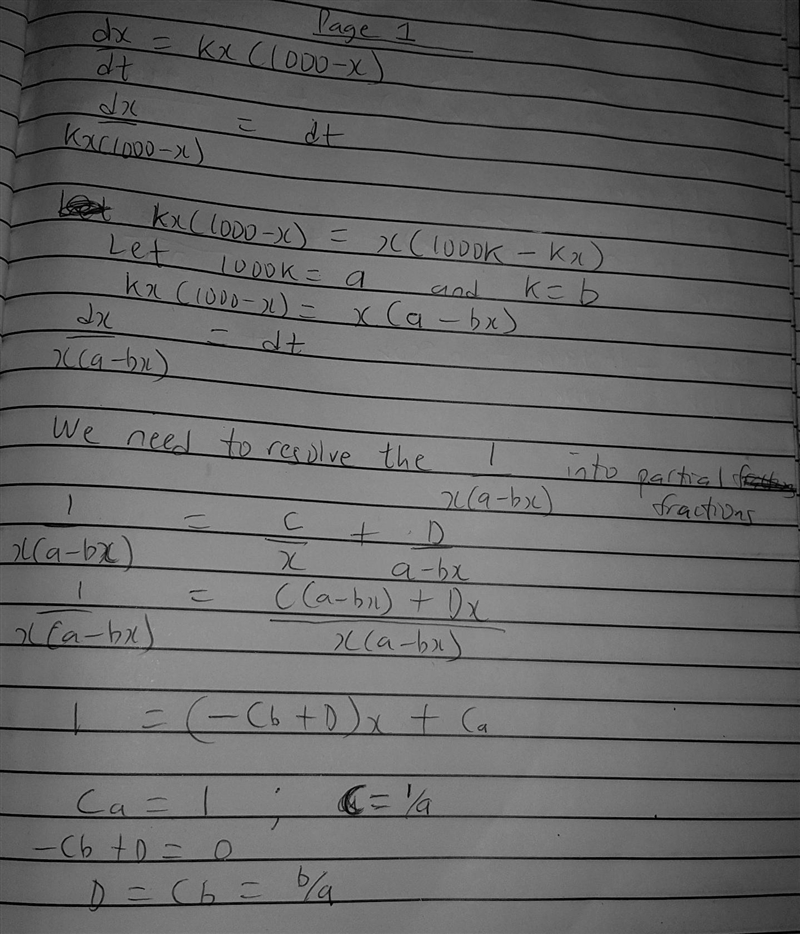 Page 1
dx/dt = Kx(1000-x)
dx/Kx(1000-x) = dt
Kx(1000-x) = x(1000K - Kx)
Let 1000K = a and K = b
Kx(1000-x) = x(a-bx)
dx/x(a-bx) = dt
We need to resolve the 1/x(a-bx) into partial
fractions
1/x(a-bx) = C/x + D/a-bx
1/x(a-bx) = C(a-bx) + Dx/x(a-bx)
1 = (-Cb+D)x + Ca
Ca = 1 ; C = 1/a
-Cb+D = 0
D = Cb = b/a